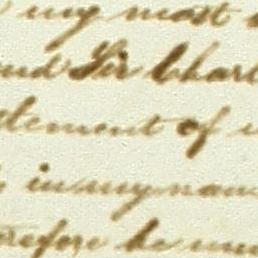 my most
and Sir Charl
tlement of
in my nam
refore be